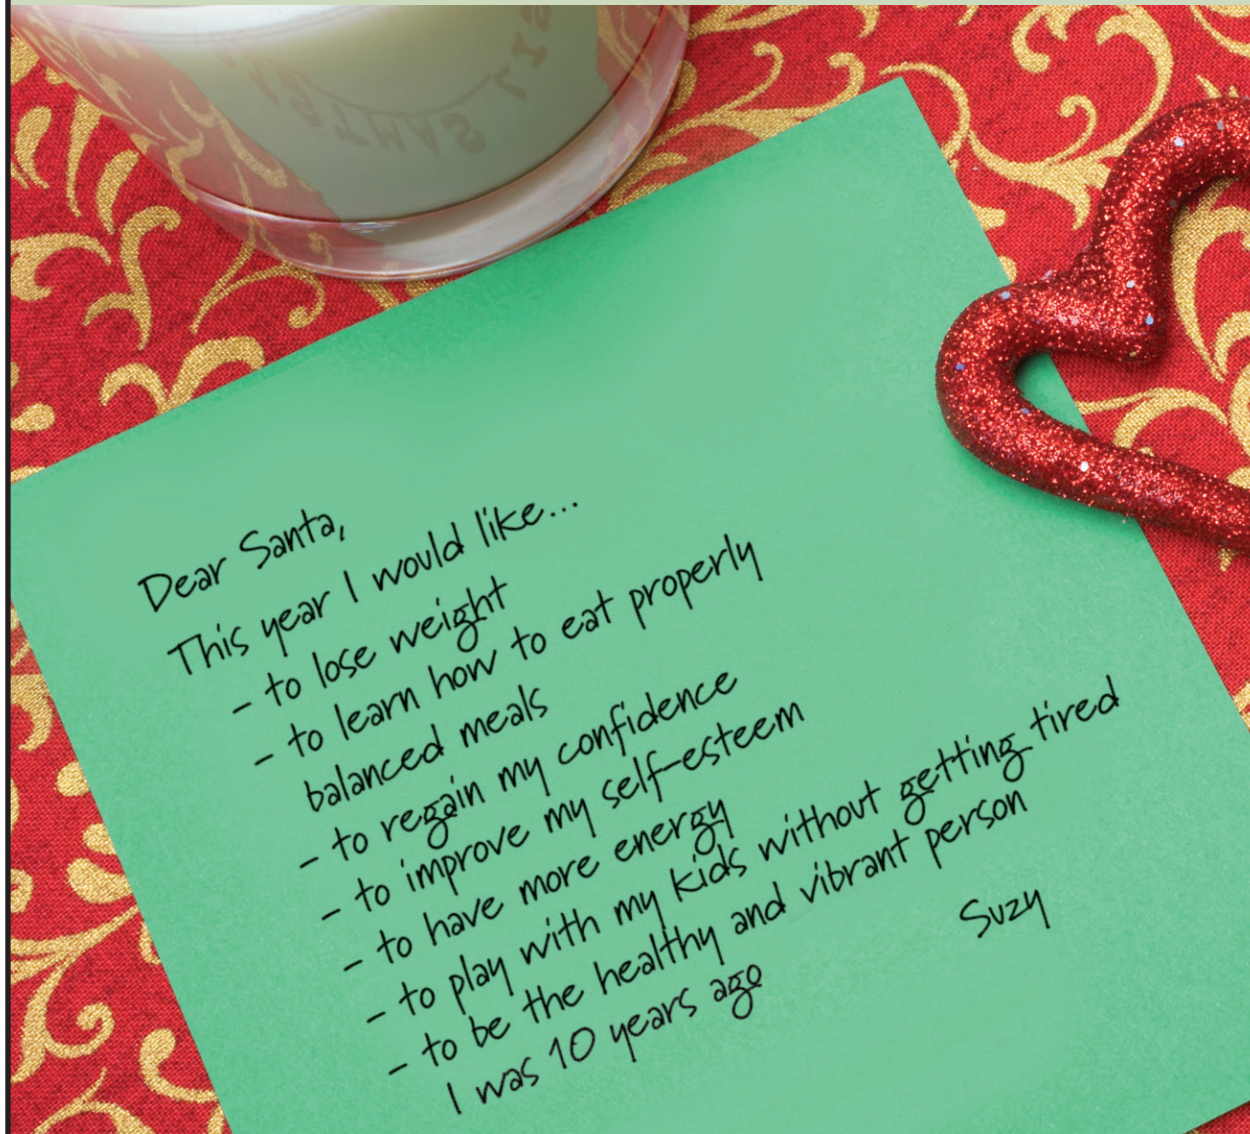 Dear Santa,
This year I would like...
- to lose weight
- to learn how to eat properly
balanced meals
- to regain my confidence
- to improve my self-esteem
- to have more energy
- to play with my kids without getting tired
- to be the healthy and vibrant person
I was 10 years ago
Suzy